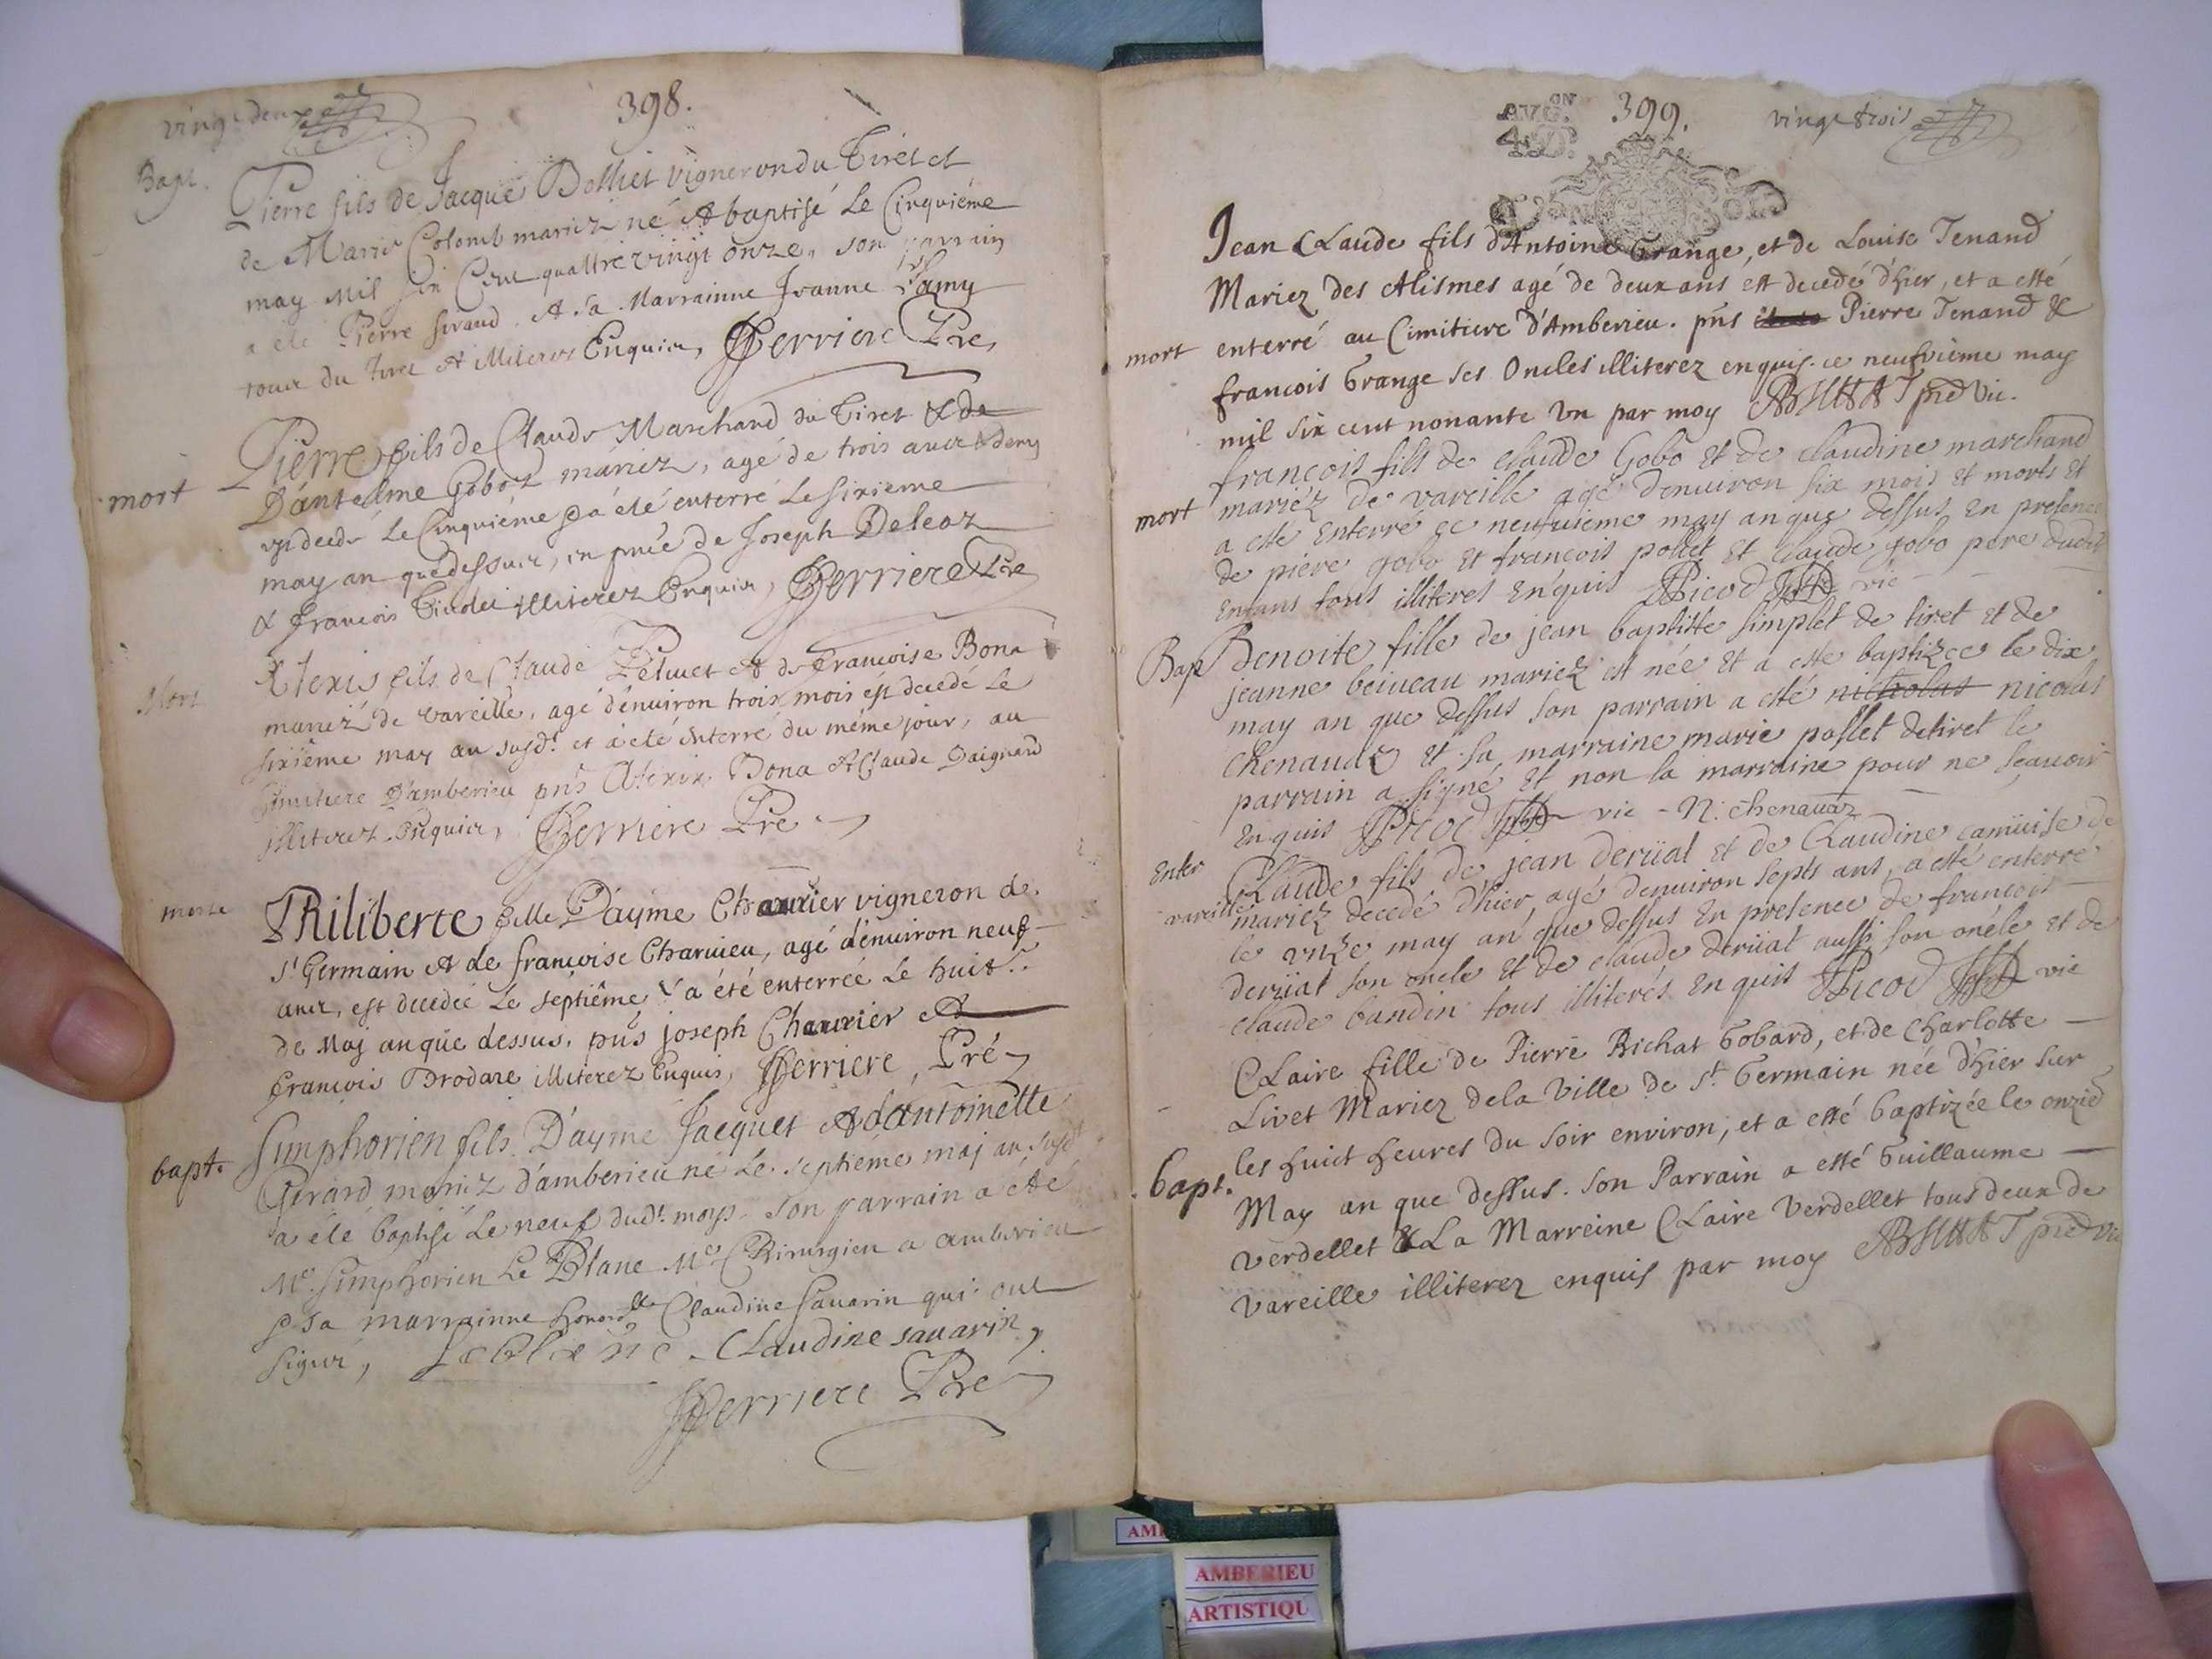 vingt deux
398.
Bapt.
Pierre fils de Jacque Dolliet vigneron du Tiret et
de Marie Colomb mariez né et baptisé le Cinquiéme
may mil six Cent quattre vingt onze, son parrain
a eté Pierre siraud et sa Marrainne Jeanne
tous du tiret et illiterez Enquis, Ferriere Pre,
mort
Pierre fils de Claude Marchand du Tiret & de
D'antelme Goboz mariez, agé de trois ans & demy
est decedé le Cinquiéme & a eté enterré le sixieme
may an que dessus, en pnce de Joseph Deleaz
& francois illiterez Enquis, Ferriere Pre
Mort
Alexis fils de Claude et de francoise Bona
mariéz de Vareille, agé d'enuiron trois mois est decedé le
sixiême may an susd.t et a eté enterré du même jour, au
Cimetiere D'amberieu pns Alexis Bona et Claude Daignard
illiterez Enquis, Ferriere Pre
morte
Philiberte fille D'ayme Charuier vigneron de
s.t Germain et de françoise Charuieu, agé d'enuiron neuf
ans, est decedée le séptiême & a été enterrée le huit.
de Maj an que dessus, pns joseph Charuier et
francois Brodare illiterez Enquis, Ferriere, Pré
bapt.
Simphorien fils D'ayme Jacquet et d'antoinette
Gerard mariez d'amberieu né le septiéme maj an susd.t
a été baptisé le neuf dud.t moys son parrain a été
M.e Simphorien Le Blanc M.e Chirurgien a amberieu
& sa marrainne honor.lle Claudine Sauarin qui ont
signé, Leblanc Claudine sauarin,
Ferriere Pré
AVG.ON
4.D.
399.
vingt trois
Jean Claude fils d'Antoine Grange, et de Louise Tenand
Mariez des Alismes agé de deux ans est decedé d'hier, et a esté
mort
enterré au Cimitiere d'Amberieu. pns Pierre Tenand &
francois Grange ses Oncles illiterez enquis. ce neufvieme may
mil six cent nonante vn par moy pre vic.
francois fils de claude Gobo et de claudine marchand
mort
mariéz de vareille agé denuiron six mois et morts et
a esté enterré ce neufuieme may an que dessus En presence
de piere gobo et francois pollet et claude gobo pere dudit
enfans tous illiteres enquis Picod vic
Bap
Benoite fille de jean baptiste simplet de tiret et de
jeanne beineau mariez est née et a esté baptizée le dix
may an que dessus son parrain a esté nicholas nicolas
chenaudz et sa marraine marie pollet detiret le
parrain a signé et non la marraine pour ne sçauoir
Enquis Picod vic - N. chenauaz
Enter
vareille
Claude fils de jean derüat et de Claudine camuise de
mariez decedé dhier agé denuiron septs ans, a esté enterré
le vnze may an que dessus En presence de francois
derüat son oncle et de claude derüat aussy son oncle et de
claude baudin tous illiterés Enquis Picod vic
Claire fille de Pierre Richat Gobard, et de Charlotte
Livet Mariez dela Ville de S.t Germain née d'hier sur
les huict heures du soir environ, et a esté baptizée le onzie
bapt.
May an que dessus. son Parrain a esté Guillaume
Verdellet & La Marreine Claire Verdellet tous deux de
Vareille illiterez enquis par moy pre vic
AMBERIEU
ARTISTIQU